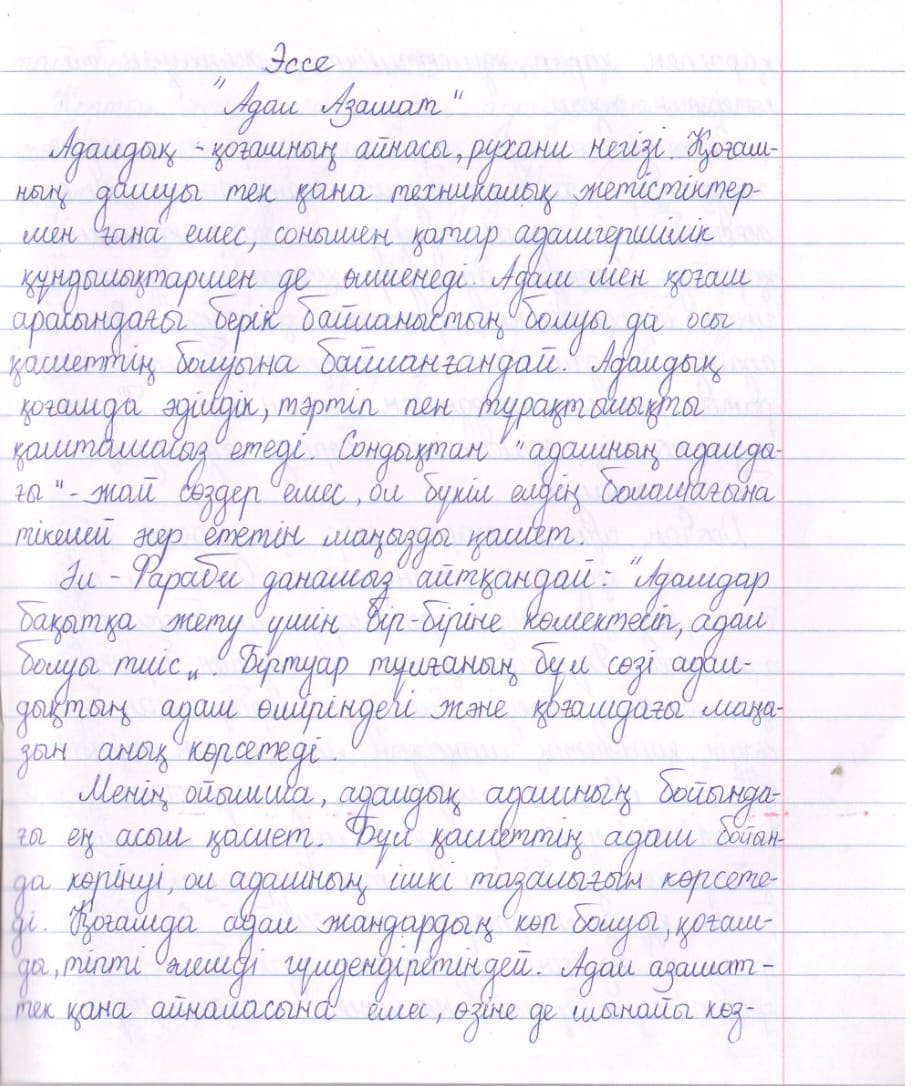 Эссе
"Адал Азамат"
Адалдық - қоғамның айнасы, рухани негізі. Қоғам-
ның дамуы тек қана техникалық жетістіктер-
мен ғана емес, сонымен қатар адамгершілік
құндылықтармен де өлшенеді. Адам мен қоғам
арасындағы берік байланыстың болуы да осы
қасиеттің болуына байланғандай. Адалдық
қоғамда әділдік, тәртіп пен тұрақтылықты
қамтамасыз етеді. Сондықтан "адамның адалды-
ғы" - жай сөздер емес, ол бүкіл елдің болашағына
тікелей әсер ететін маңызды қасиет.
Әл - Фараби данамыз айтқандай: "Адамдар
бақытқа жету үшін бір-біріне көмектесіп, адал
болуы тиіс„. Біртуар тұлғаның бұл сөзі адал-
дықтың адам өміріндегі және қоғамдағы маңы-
зын анық көрсетеді.
Менің ойымша, адалдық адамның бойында-
ғы ең асыл қасиет. Бұл қасиеттің адам бойын-
да көрінуі, ол адамның ішкі тазалығын көрсете-
ді. Қоғамда адал жандардың көп болуы, қоғам-
ды, тіпті әлемді гүлдендіретіндей. Адал азамат -
тек қана айналасына емес, өзіне де шынайы көз-